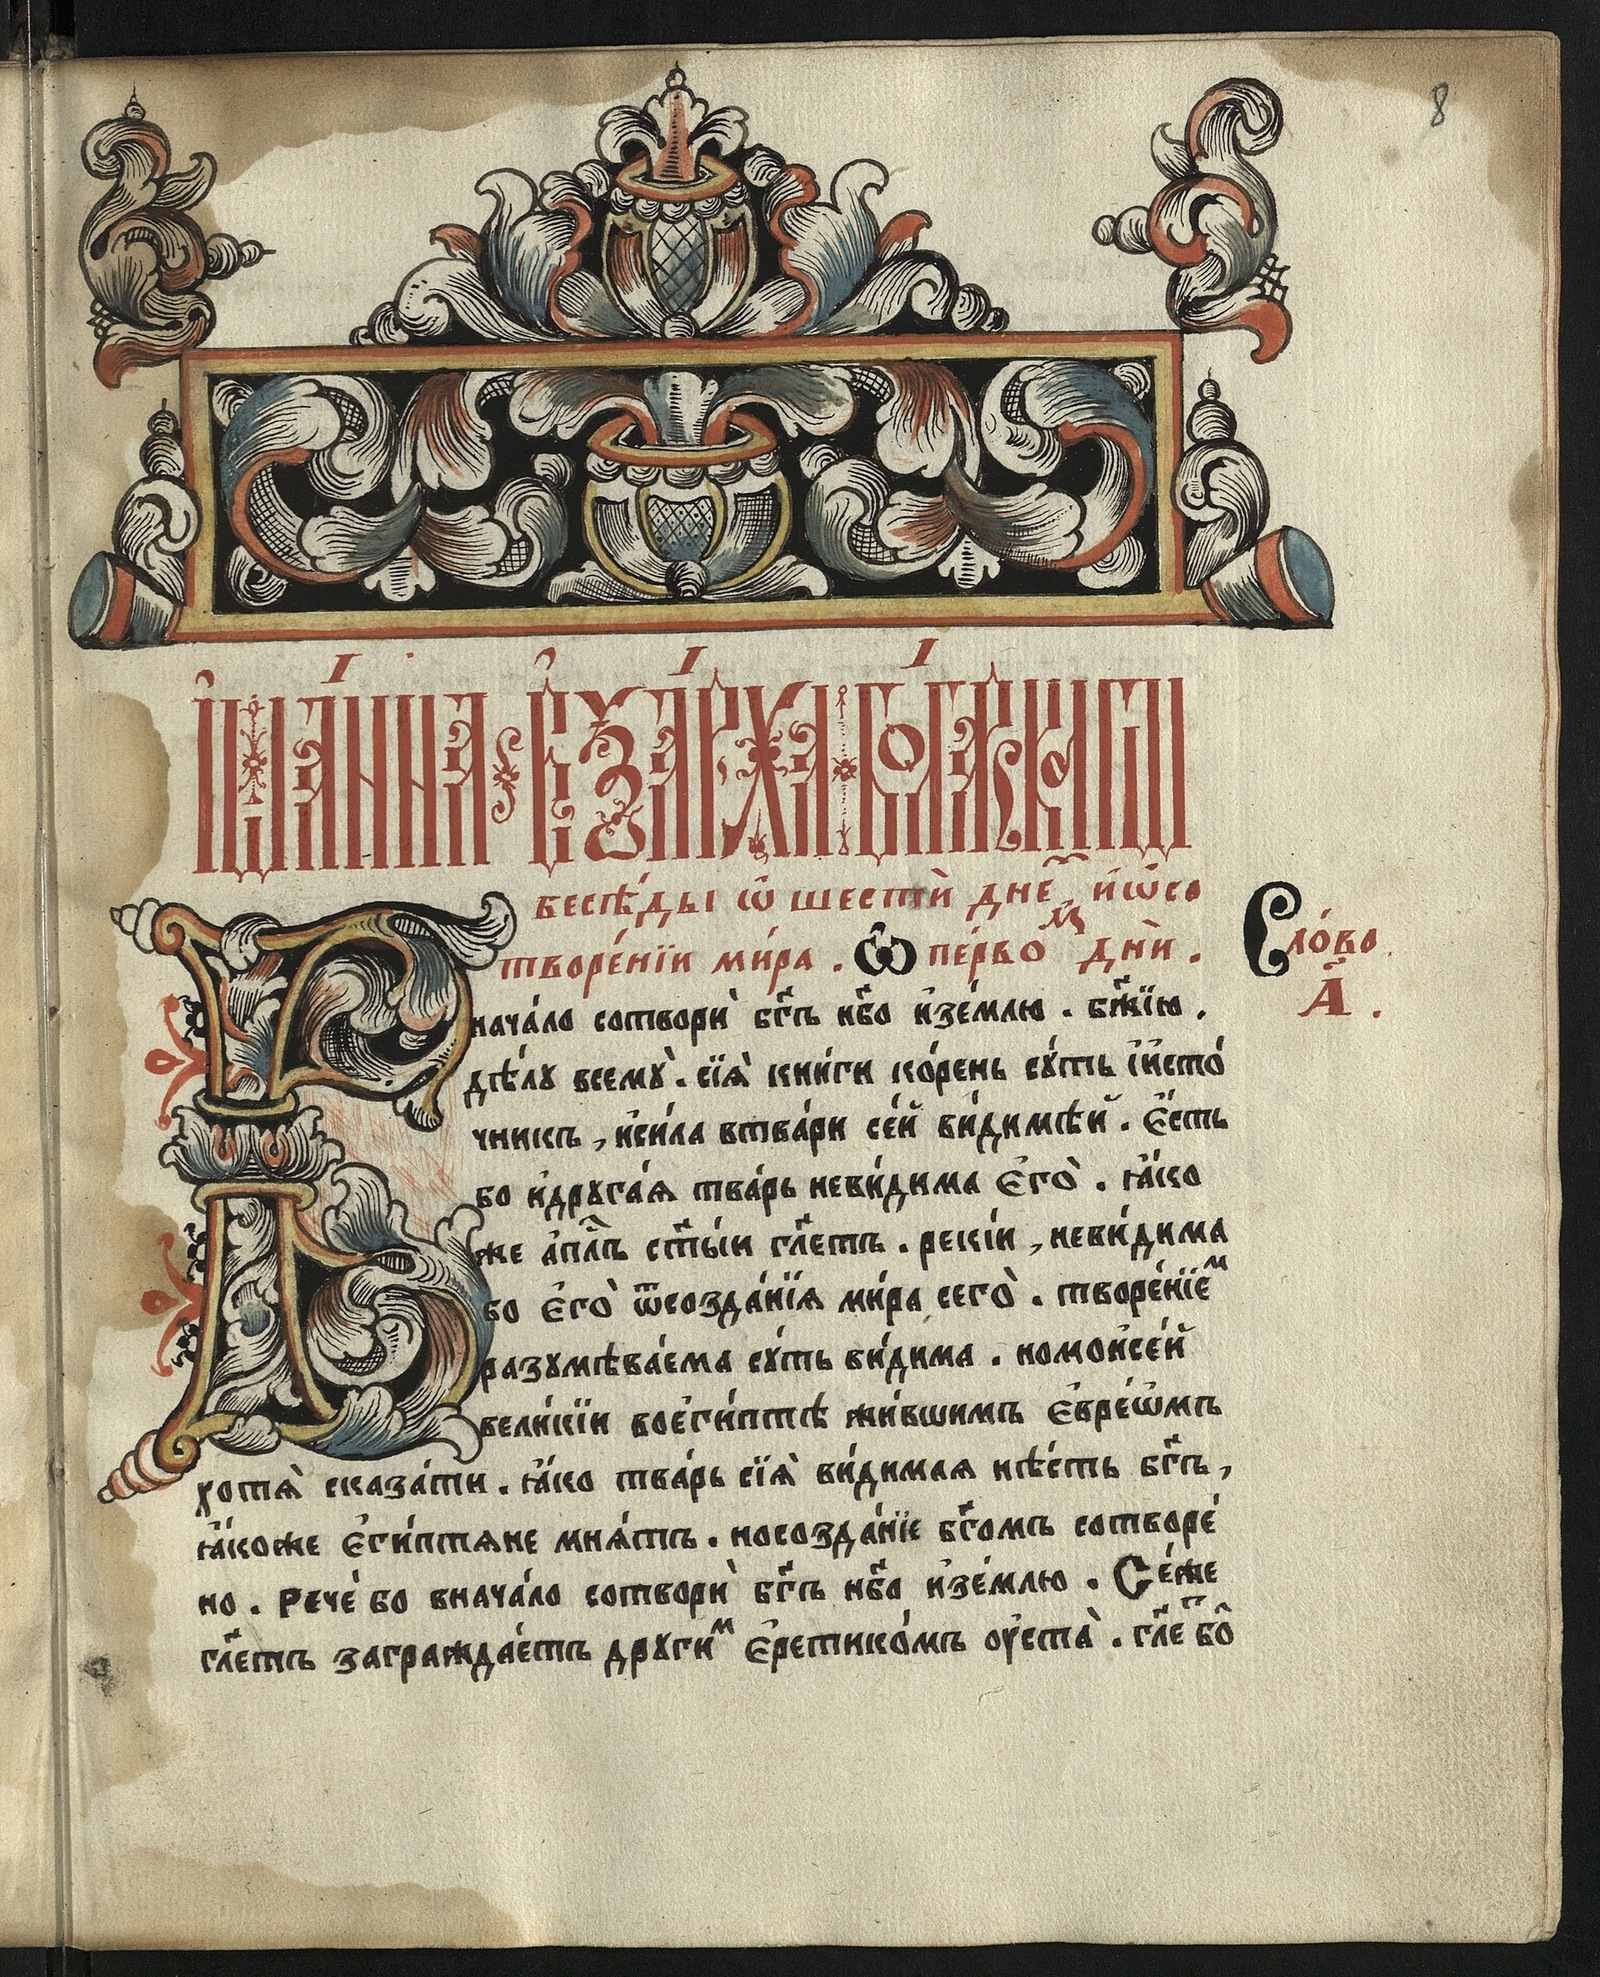 8
І҆ѡа́нна є҆ѯа́рха бо́лгарскагѡ
бесѣ́ды ѡ҆ шести́ дне҃ и҆ѡ҆со
творе́нїи ми́ра . Ѡ҆ пе́рвоᷨ днѝ .
Сло́во
а҃ .
Вначѧ́ло сотворѝ бг҃ъ нб҃о и҆зе́млю . бж҃їю .
дѣ́лу всемꙋ̀ . сїѧ̀ кни́ги ко́рень сꙋ́ть і҆и҆сто́
чникъ , и҆си́ла втва́ри се́й ви́димѣй . є҆́сть
бо и҆дрꙋга́ѧ тва́рь неви́дима є҆гѡ̀ . ꙗ҆́ко
же а҆п҃лъ ст҃ы́и гл҃етъ . рекі́и , неви́дима
бо є҆го̀ ѿсозда́нїѧ ми́ра сего̀ . творе́нїеᷨ
разꙋмѣва́ема сꙋ́ть ви́дима . номои҆се́й
вели́кїи вое҆ги́птѣ жи́вшимъ є҆вре́ѡмъ
хотѧ̀ сказа́ти . ꙗ҆́ко тва́рь сїѧ̀ ви́димаѧ нѣ́сть бг҃ъ ,
ꙗ҆́коже є҆ги́птѧне мнѧ́тъ . носозда́нїе бг҃омъ сотворе́
но . Рече́ бо вначѧ́ло сотворѝ бг҃ъ нб҃о и҆зе́млю . Се́же
гл҃етъ заграждае́тъ дрꙋгиᷨ є҆ретико́мъ оу҆ста̀ . гл҃е бо҆